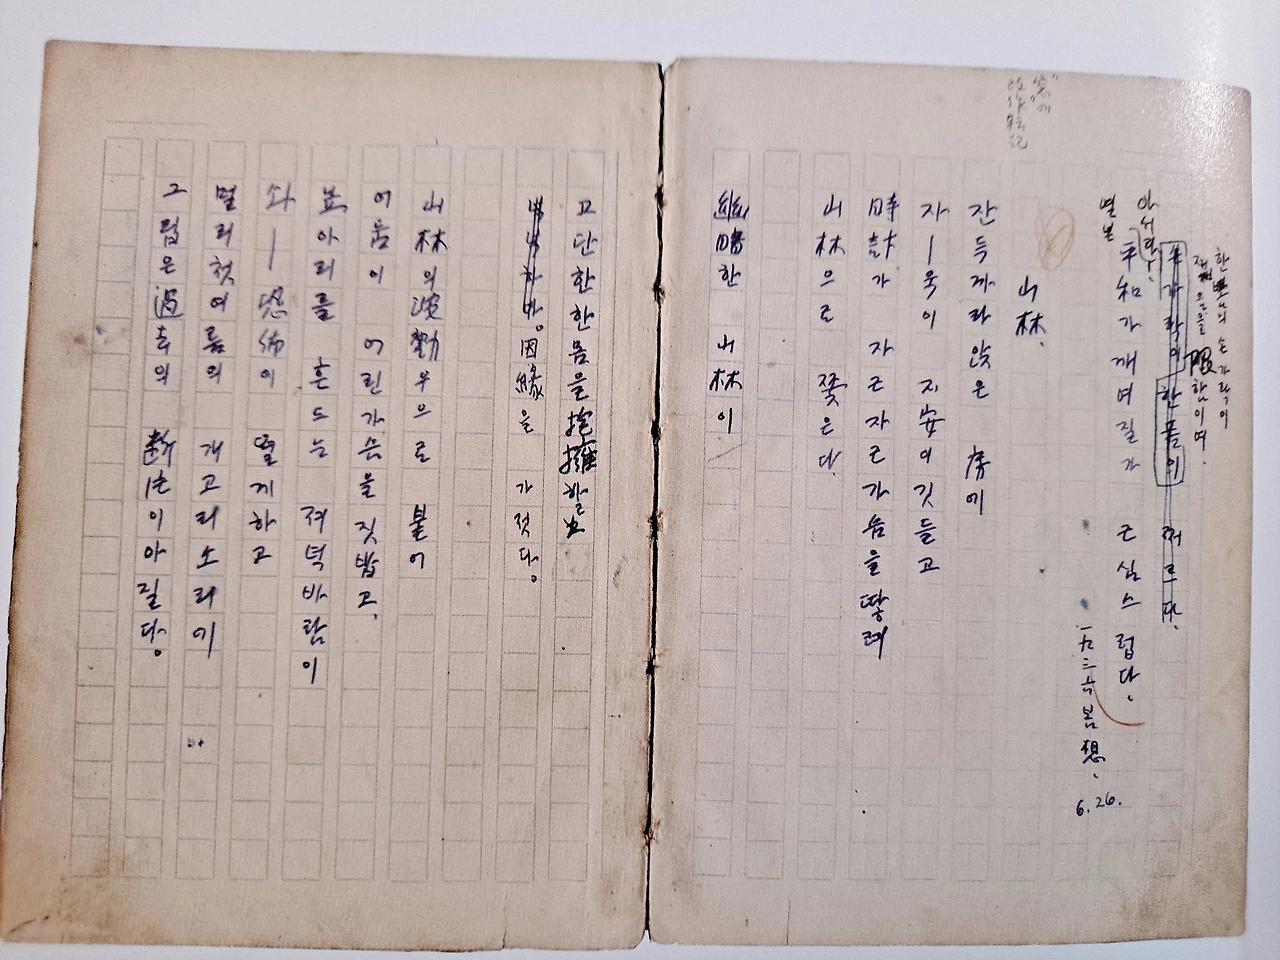 손가락이
限함이며.
아서라,
열븐 平和가 깨여질가 근심스럽다.
一九三六봄想、 6.26.
"窓"에
改作転記
山林、
잔득 까라앉은 房에
자―욱이 지安이 깃들고
時計가 자근자근 가슴을 땋려
山林으로 쫓은다.
幽暗한 山林이
고단한 한몸을 抱擁할
因緣을 가젓다。
山林의 波動우으로 붙어
어둠이 어린가슴을 짓밟고、
흔드는 저녁바람이
솨―恐怖에 떨게하고
멀리첫여름의 개고리소리에
그립은過去의 斷片이아질다。